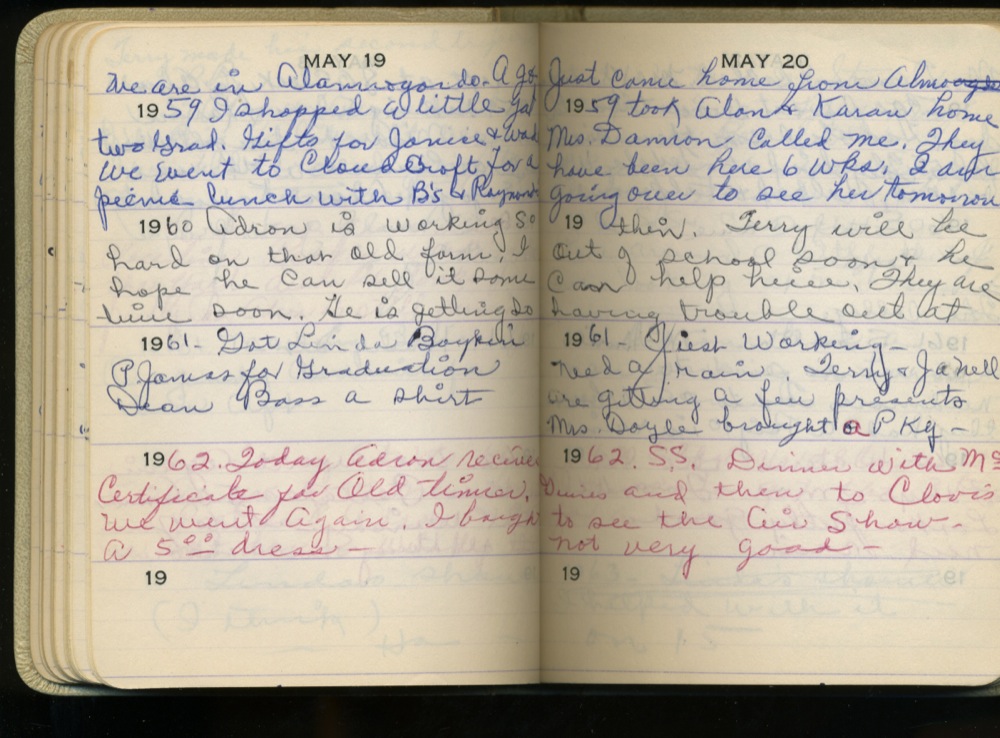 MAY 19
We are in Alamogordo. A
1959 I shopped a little
two Grad. Gifts for Janice &
We went to Cloud Croft for a
picnic lunch with B's &
1960 Adron is working so
hard on that old farm. I
hope he can sell it some
time soon. He is getting so
1961 - Got Linda Boykin
P Jamas for Graduation
Dean Bass a shirt
1962. Today Adron receive
Certificate for Old timer.
We went Again. I bough
a 5.00 dress -
19
MAY 20
Just came home from
1959 took Alan & Karan home
Mrs. Dannon called me. They
have been here 6 wks. I am
going over to see her tomorrow
19 thin. Terry will be
out of school soon & he
can help here. They are
having trouble out at
1961 - Just Working -
need a rain. Terry & Janell
are getting a few presents
Mrs. Doyle brought a PKg -
1962. SS. Dinner with
and then to Clovis
to see the Air Show -
not very good -
19